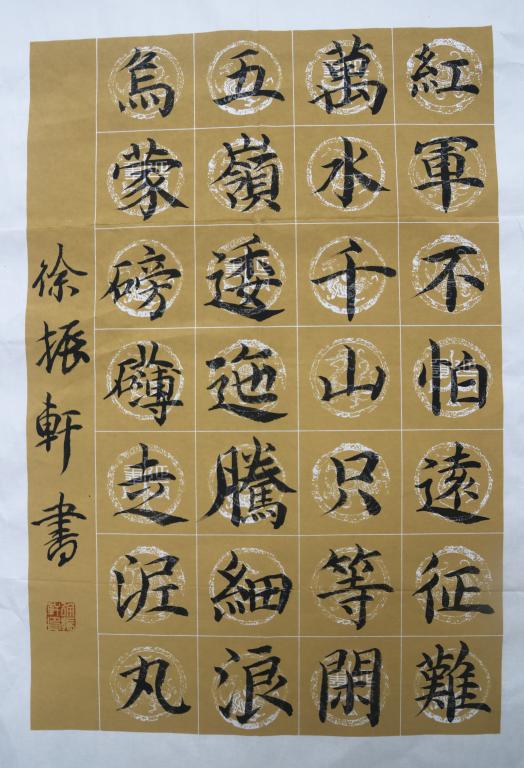 紅軍不怕遠征難
萬水千山只等閑
五嶺逶迤騰細浪
烏蒙磅礴走泥丸
徐振軒書